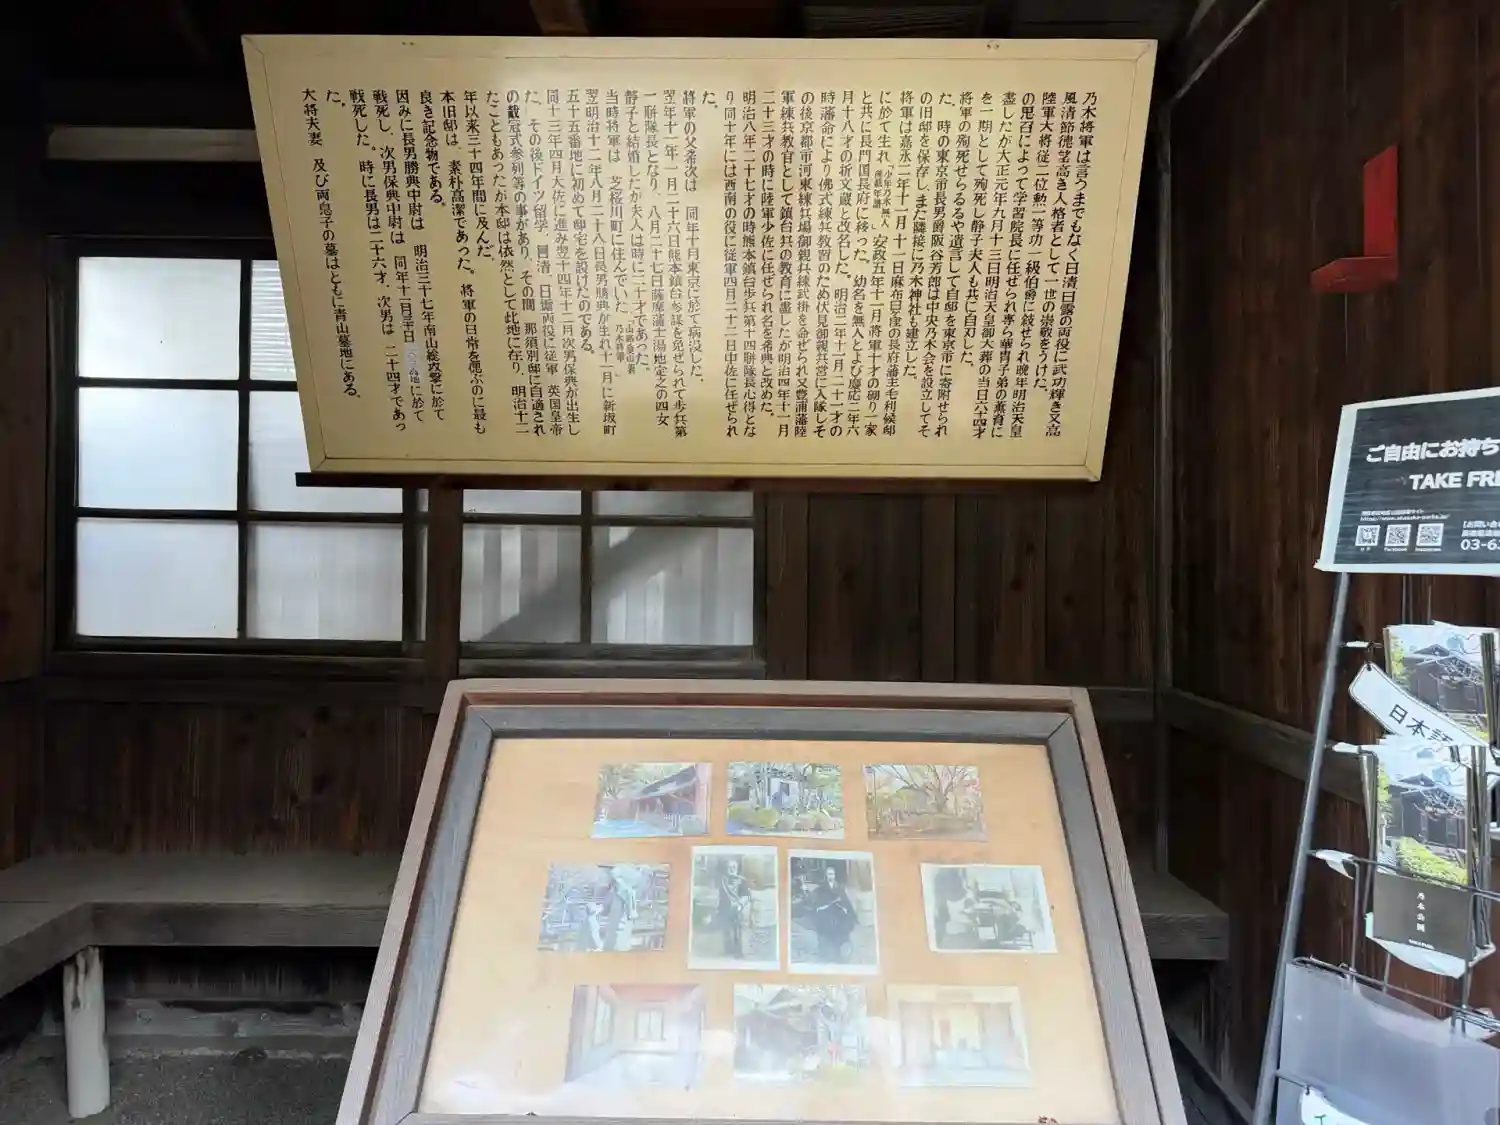 乃木将軍は言うまでもなく日清日露の両役に武功輝き又高
風清節徳望高き人格者として一世の崇敬をうけた。
陸軍大将従二位勲一等功一級伯爵に敍せられ晩年明治天皇
の思召によって学習院長に任ぜられ専ら華冑子弟の薫育に
盡したが大正元年九月十三日明治天皇御大葬の当日六十四才
を一期として殉死し静子夫人も共に自刃した。
将軍の殉死せらるるや遺言して自邸を東京市に寄附せられ
た。時の東京市長男爵阪谷芳郎は中央乃木会を設立してそ
の旧邸を保存し、また隣接に乃木神社も建立した。
将軍は嘉永二年十一月十一日麻布日ケ窪の長府藩主毛利候邸
に於て生れ「少年乃木無人 所載年譜」安政五年十一月将軍十才の砌り一家
と共に長門国長府に移った。幼名を無人とよび慶応二年六
月十八才の折文蔵と改名した。明治二年十一月二十一才の
時藩命により佛式練兵教習のため伏見御親兵営に入隊しそ
の後京都市河東練兵場御親兵練武掛を命ぜられ又豊浦藩陸
軍練兵教官として鎮台兵の教育に盡したが明治四年十一月
二十三才の時に陸軍少佐に任ぜられ名を希典と改めた。
明治八年二十七才の時熊本鎮台歩兵第十四聯隊長心得とな
り同十年には西南の役に従軍四月二十二日中佐に任ぜられ
た。
将軍の父希次は 同年十月東京に於て病没した。
翌年十一年一月二十六日熊本鎮台参謀を免ぜられて歩兵第
一聯隊長となり、八月二十七日薩摩藩士湯地定之の四女
静子と結婚したが夫人は時に二十才であった。
当時将軍は 芝桜川町に住んでいた「山路愛山著 乃木将軍」
翌明治十二年八月二十八日長男勝典が生れ十一月に新坂町
五十五番地に初めて邸宅を設けたのである。
同十三年四月大佐に進み翌十四年十二月次男保典が出生し
た。その後ドイツ留学、日清、日露両役に従軍 英国皇帝
の戴冠式参列等の事があり、その間 那須別邸に自適され
たこともあったが本邸は依然として此地に在り、明治十二
年以来三十四年間に及んだ。
本旧邸は、素朴高潔であった。将軍の日常を偲ぶのに最も
良き記念物である。
因みに長男勝典中尉は 明治三十七年南山総攻撃に於て
戦死し、次男保典中尉は 同年十一月三十日二〇三高地に於て
戦死した。時に長男は二十六才、次男は 二十四才であっ
た。
大将夫妻 及び両息子の墓はともに青山墓地にある。
ご自由にお持ち
TAKE FRE
Facebook
Instagram
【お問い合
03-6
日本語
乃木公園